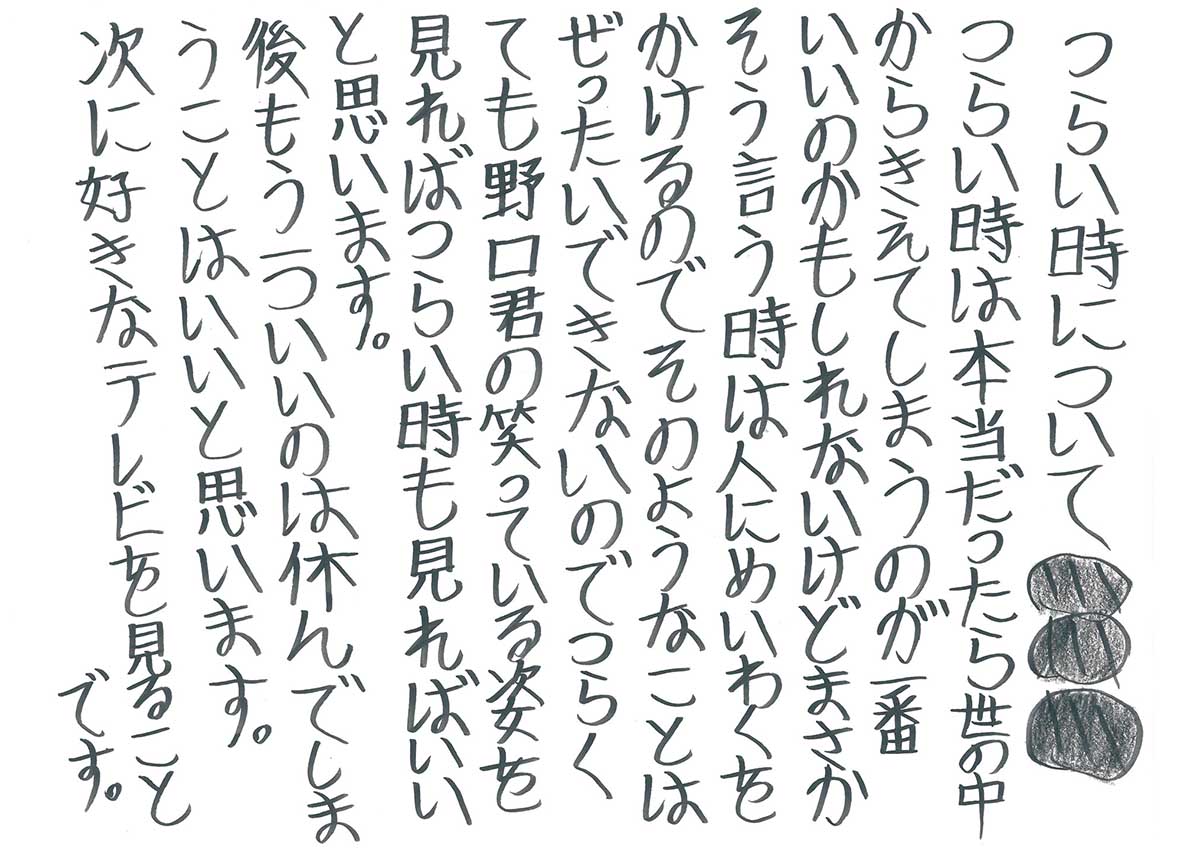 つらい時について
つらい時は本当だったら世の中
からきえてしまうのが一番
いいのかもしれないけどまさか
そう言う時は人にめいわくを
かけるのでそのようなことは
ぜったいできないのでつらく
ても野口君の笑っている姿を
見ればつらい時も見ればいい
と思います。
後もう一ついいのは休んでしま
うことはいいと思います。
次に好きなテレビを見ること
です。